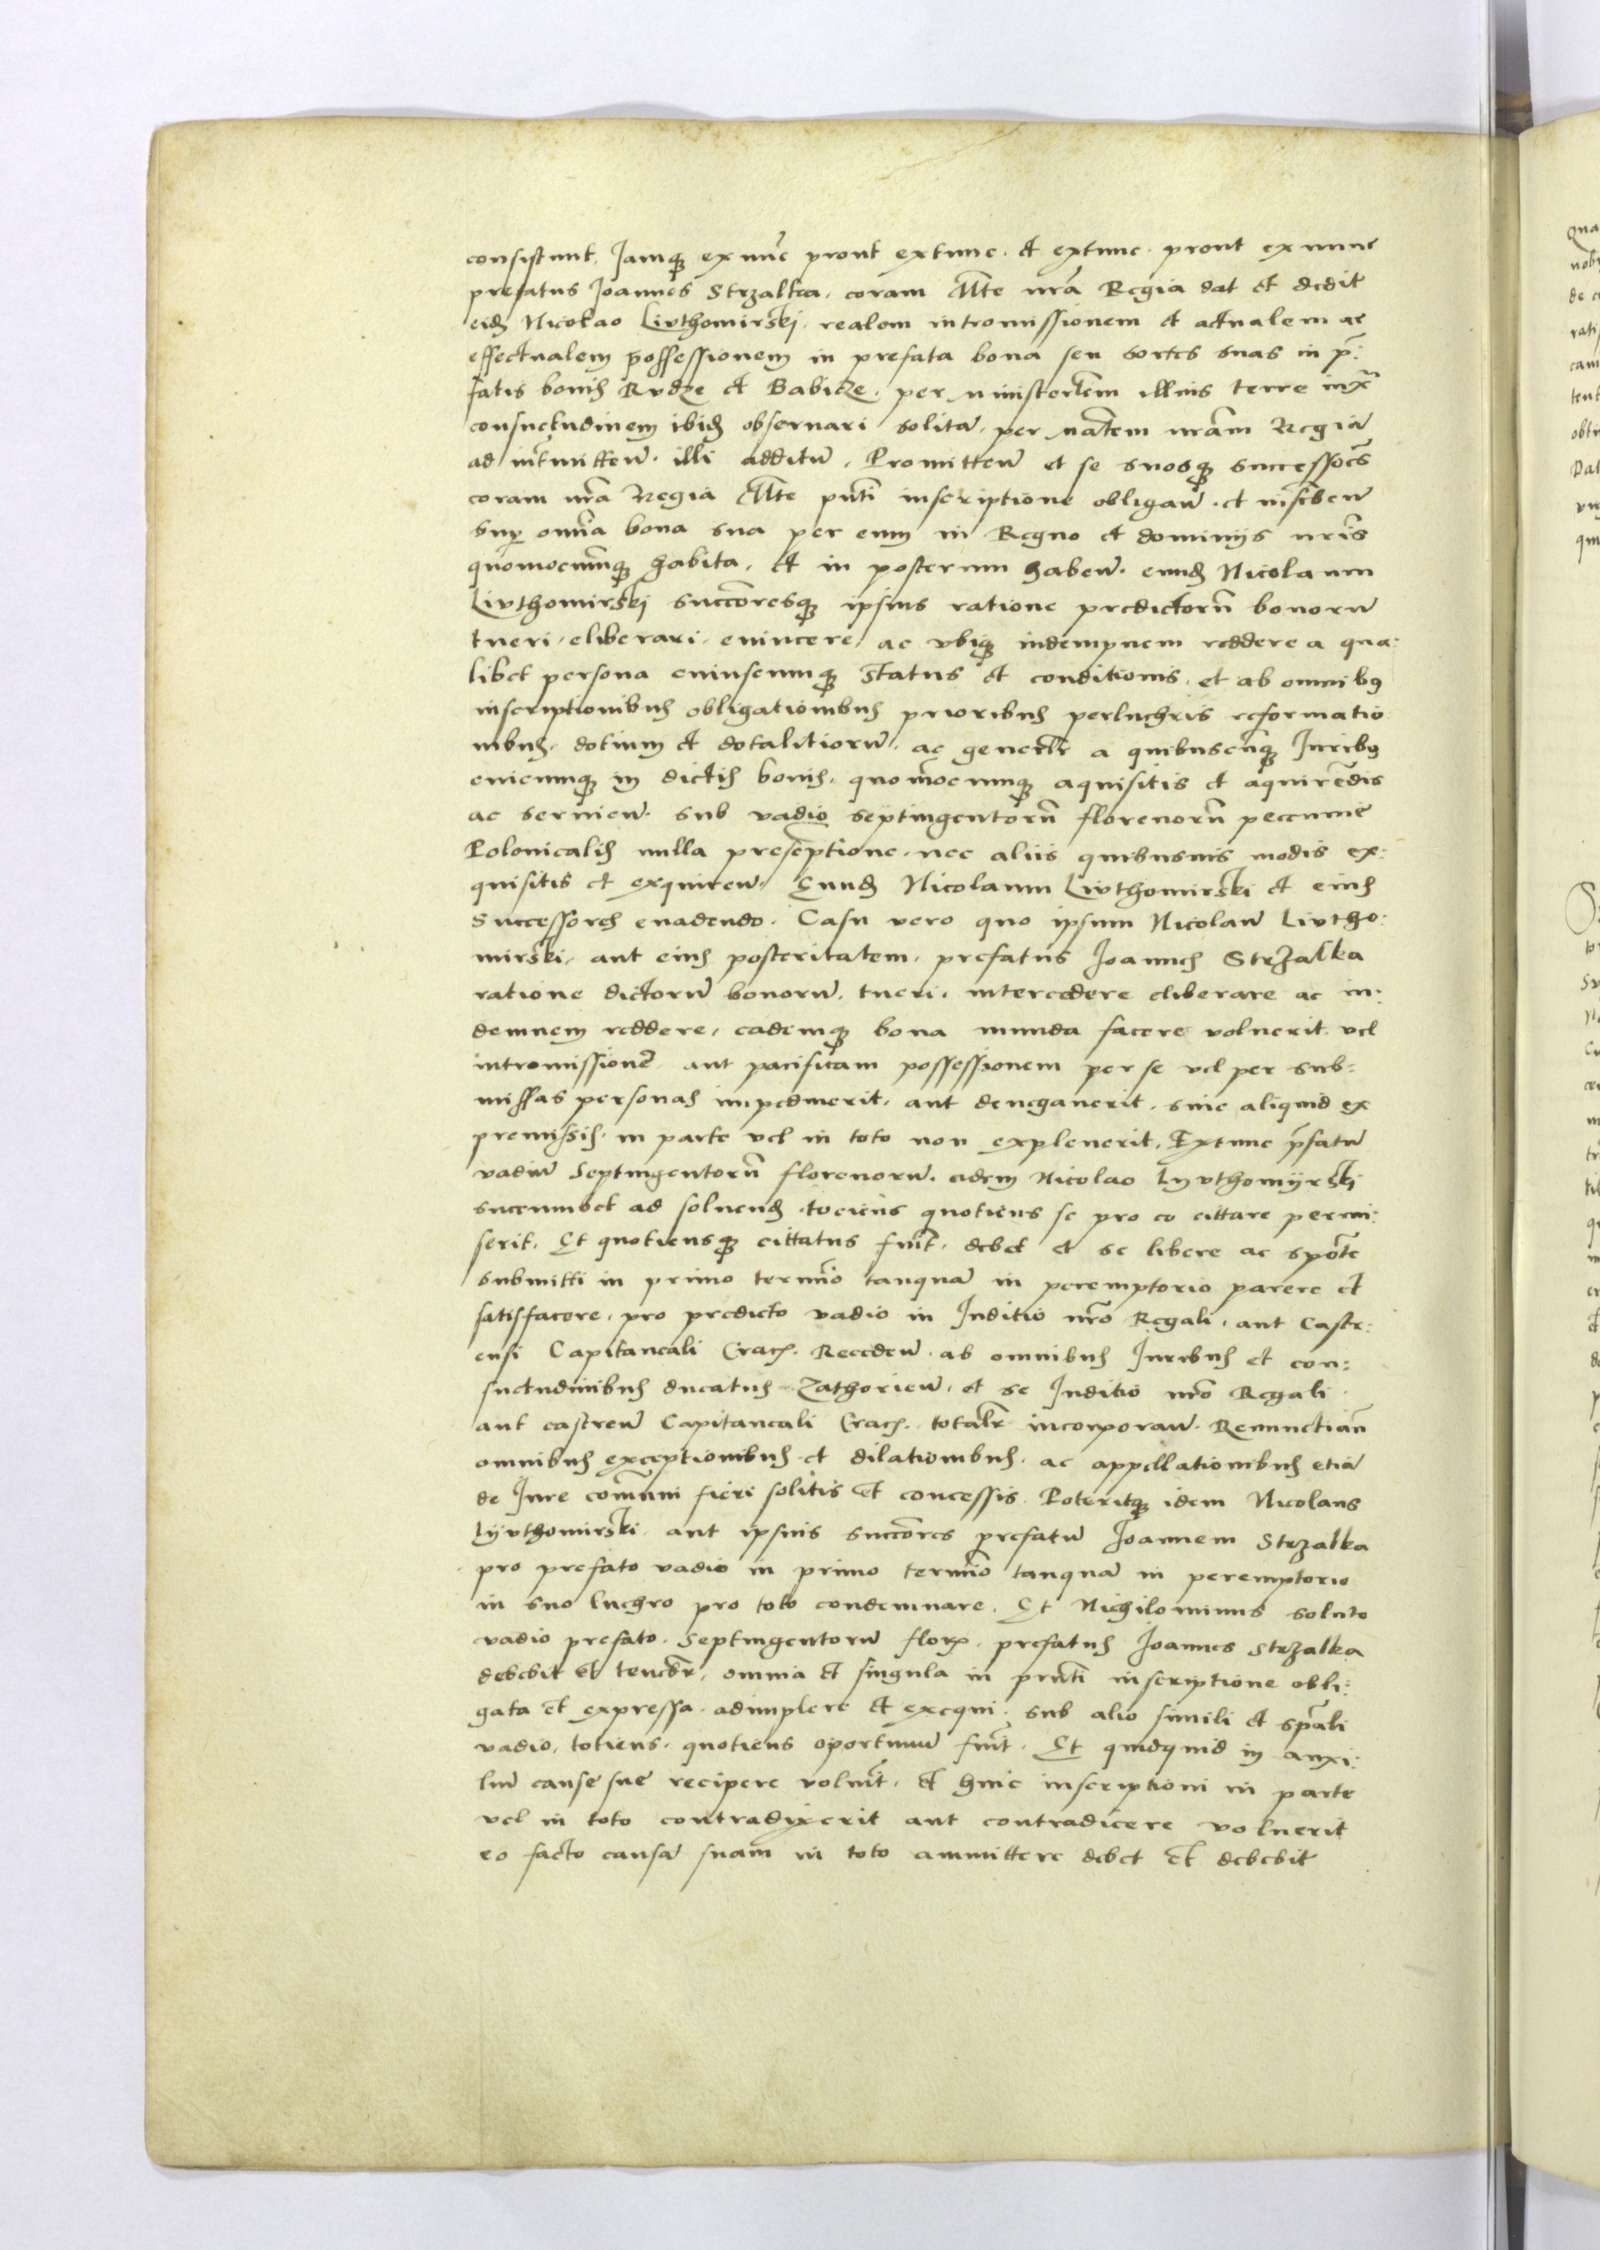 consistunt. Jamqꝫ ex nūc prout extunc. et extunc. prout ex nunc
prefatus Joannes Strzalka. coram Mte nrā Regia dat et dedit
eidꝫ Nicolao Liuthomirskj. realem intromissionem et actualem ac
effectualem possessionem in prefata bona seu sortes suas in p̄:
fatis bonis Rudze et Babicze. per ministerialem illius terre iuxta
consuetudinem ibidꝫ obseruari solitā. per Matem nrām Regiā
ad intmittēn. illi additū. Promittēn et se suosqꝫ successores
coram nrā Regia Mte pnti inscriptione obligān. et inscribēn
Suꝑ omīa bona sua per eum in Regno et dominijs nrīs
quomocunqꝫ habita. et in posterum habēn. eundꝫ Nicolaum
Liuthomirskj successoresqꝫ ipsius ratione predictorū bonorū
tueri. eliberari. euincere. ac vbiqꝫ indempnem reddere a qua:
libet persona cuiuscumqꝫ status et conditionis. et ab omnibꝰ
inscriptionibus obligationibus prioribus perlucris reformatio
nibus. dotium et dotalitiorū. ac generlr a quibuscūqꝫ Juribꝰ
cuicumqꝫ in dictis bonis. quomocumqꝫ aquisitis et aquirēdis
ac seruien. sub vadio septingentorū florenorū peccunie
Polonicalis nulla prescriptione. nec aliis quibusuis modis ex:
quisitis et exquirēn. Eundꝫ Nicolaum Liuthomirski et eius
Successores euadendo. Casu vero quo ipsum Nicolaū Liutho:
mirski. aut eius posteritatem. prefatus Joannes Strzalka
ratione dictorū bonorū. tueri. intercedere eliberare ac in:
demnem reddere, eademqꝫ bona munda facere noluerit. vel
intromissionē aut pacificam possessionem per se vel per sub:
missas personas impedierit. aut denegauerit. siue aliquid ex
premissis. in parte vel in toto non expleuerit. Extunc p̄fatū
vadiū Septingentorū florenorū. eidem Nicolao Lyuthomyrskj
succumbet ad soluendꝫ. tociens quotiens se pro eo cittare permi:
serit. Et quotiensqꝫ cittatus fuit. debet et se libere ac sponte
submitti in primo termino tanquā in peremptorio parere et
satisfacere. pro predicto vadio in Juditio nrō Regali. aut Castr:
ensi Capitaneali Crac. Recedēn. ab omnibus Juribus et con:
suetudinibus ducatus Zathorien. et se Juditio nrō Regali
aut castrēn Capitaneali Crac. totalr incorporān. Renunctiān
omnibus exceptionibus. et dilationibus. ac appellationibus etiā
de Jure comuni fieri solitis et concessis. Poteritqꝫ idem Nicolaus
Lyuthomirski. aut ipsius successores prefatū Joannem Strzalka
pro prefato vadio in primo termino tanquā in peremptorio
in suo luchro pro toto condemnare. Et Nichilominus soluto
vadio prefato. Septingentorū florꝝ. prefatus Joannes Strzalka
debebit et tenebr. omnia et singula in pnti inscriptione obli:
gata et expressa. adimplere et exequi. sub alio simili et spāli
vadio. totiens. quotiens oportunū fuit. Et quidquid in auxi:
liū cause sue recipere voluit. et huic inscriptioni in parte
vel in toto contradixerit aut contradicere voluerit
eo facto causā suam in toto ammittere debet et debebit